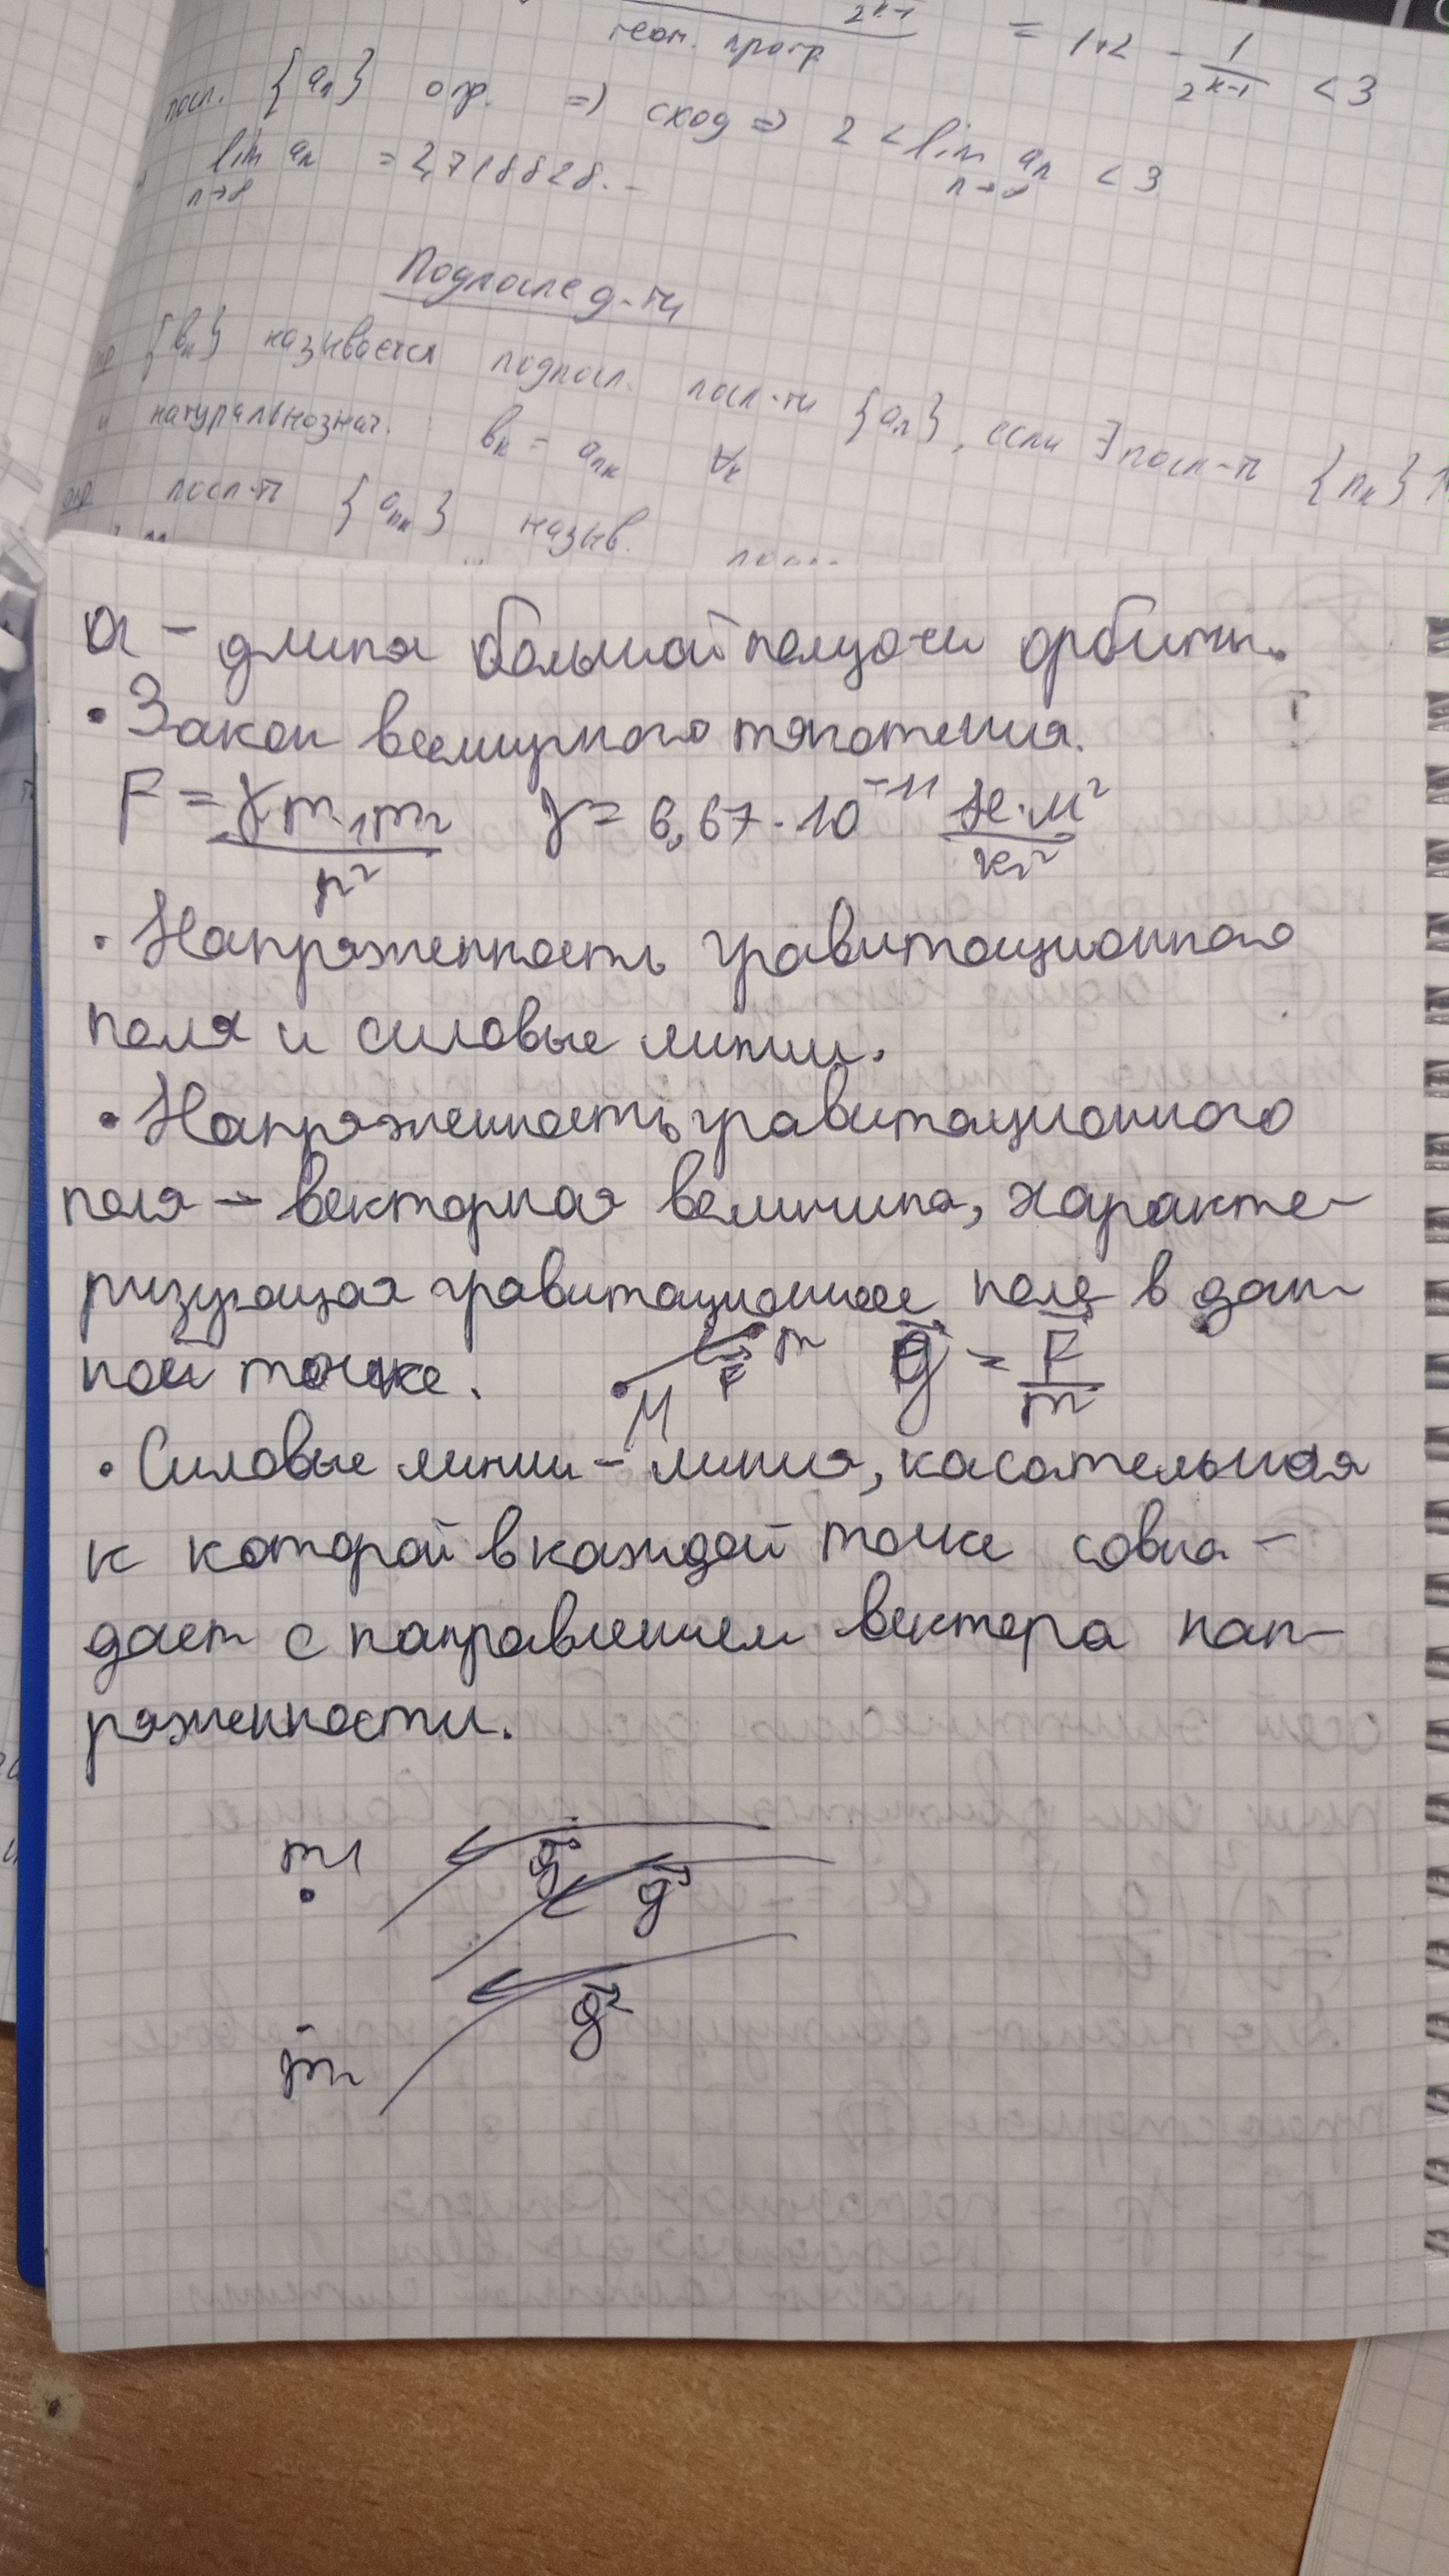 2^{k-1} = 1+2 - \frac{1}{2^{k-1}} < 3
геом. прогр.
посл. {a_n} огр. => сход => 2 < lim a_n < 3
n→∞
lim a_n = 2,718828...
n→∞
Подпослед-ти
{b_k} называется подпосл. посл-ти {a_n}, если ∃ посл-ть {n_k}
и натуральнознач. : b_k = a_{n_k} ∀k
опр посл-ть {a_{n_k}} назыв.
a – длина большой полуоси орбиты.
• Закон всемирного тяготения.
F = \frac{γm_1m_2}{r^2} γ = 6,67 · 10^{-11} \frac{Н·м^2}{кг^2}
• Напряженность гравитационного
поля и силовые линии.
• Напряженность гравитационного
поля – векторная величина, характе-
ризующая гравитационное поле в дан-
ной точке. M \vec{F} m \vec{g} = \frac{\vec{F}}{m}
• Силовые линии – линия, касательная
к которой в каждой точке совпа-
дает с направлением вектора нап-
ряженности.
m_1 \vec{g} \vec{g}
m_2 \vec{g}